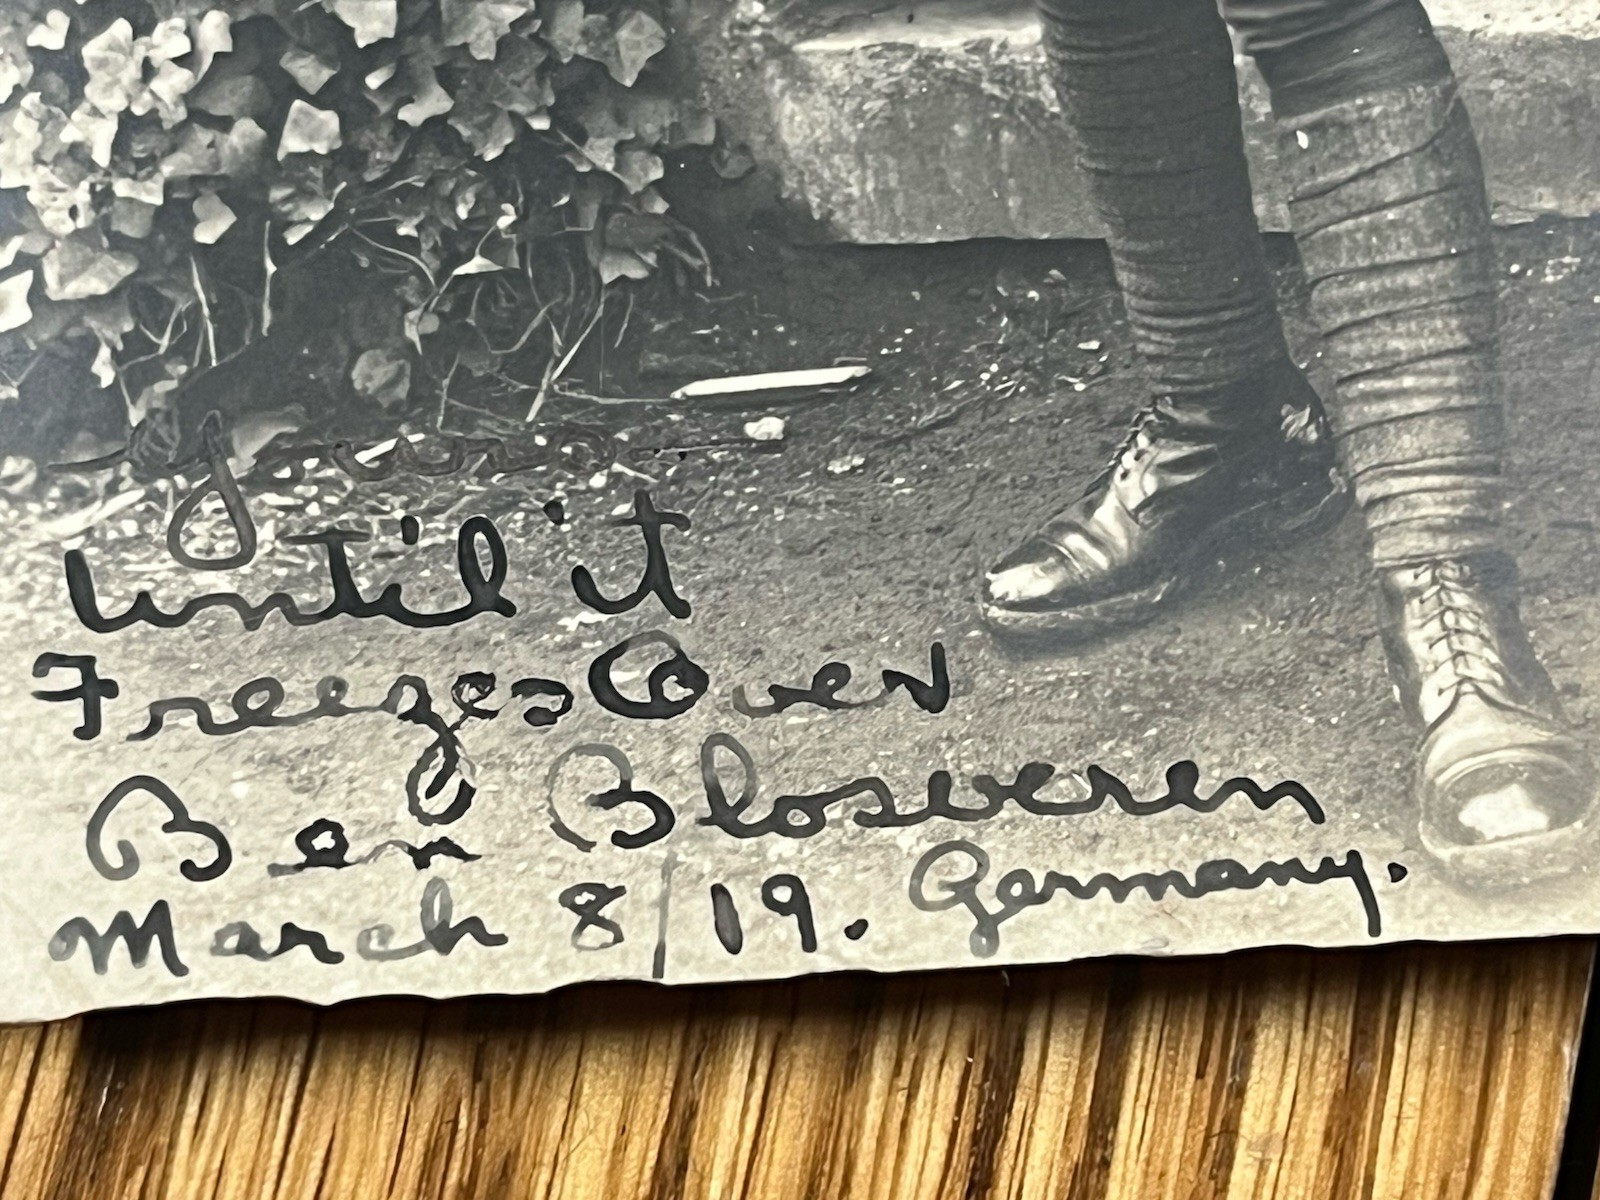 yours
until it
Freezes Over
Ben Blosveren
March 8/19. Germany.